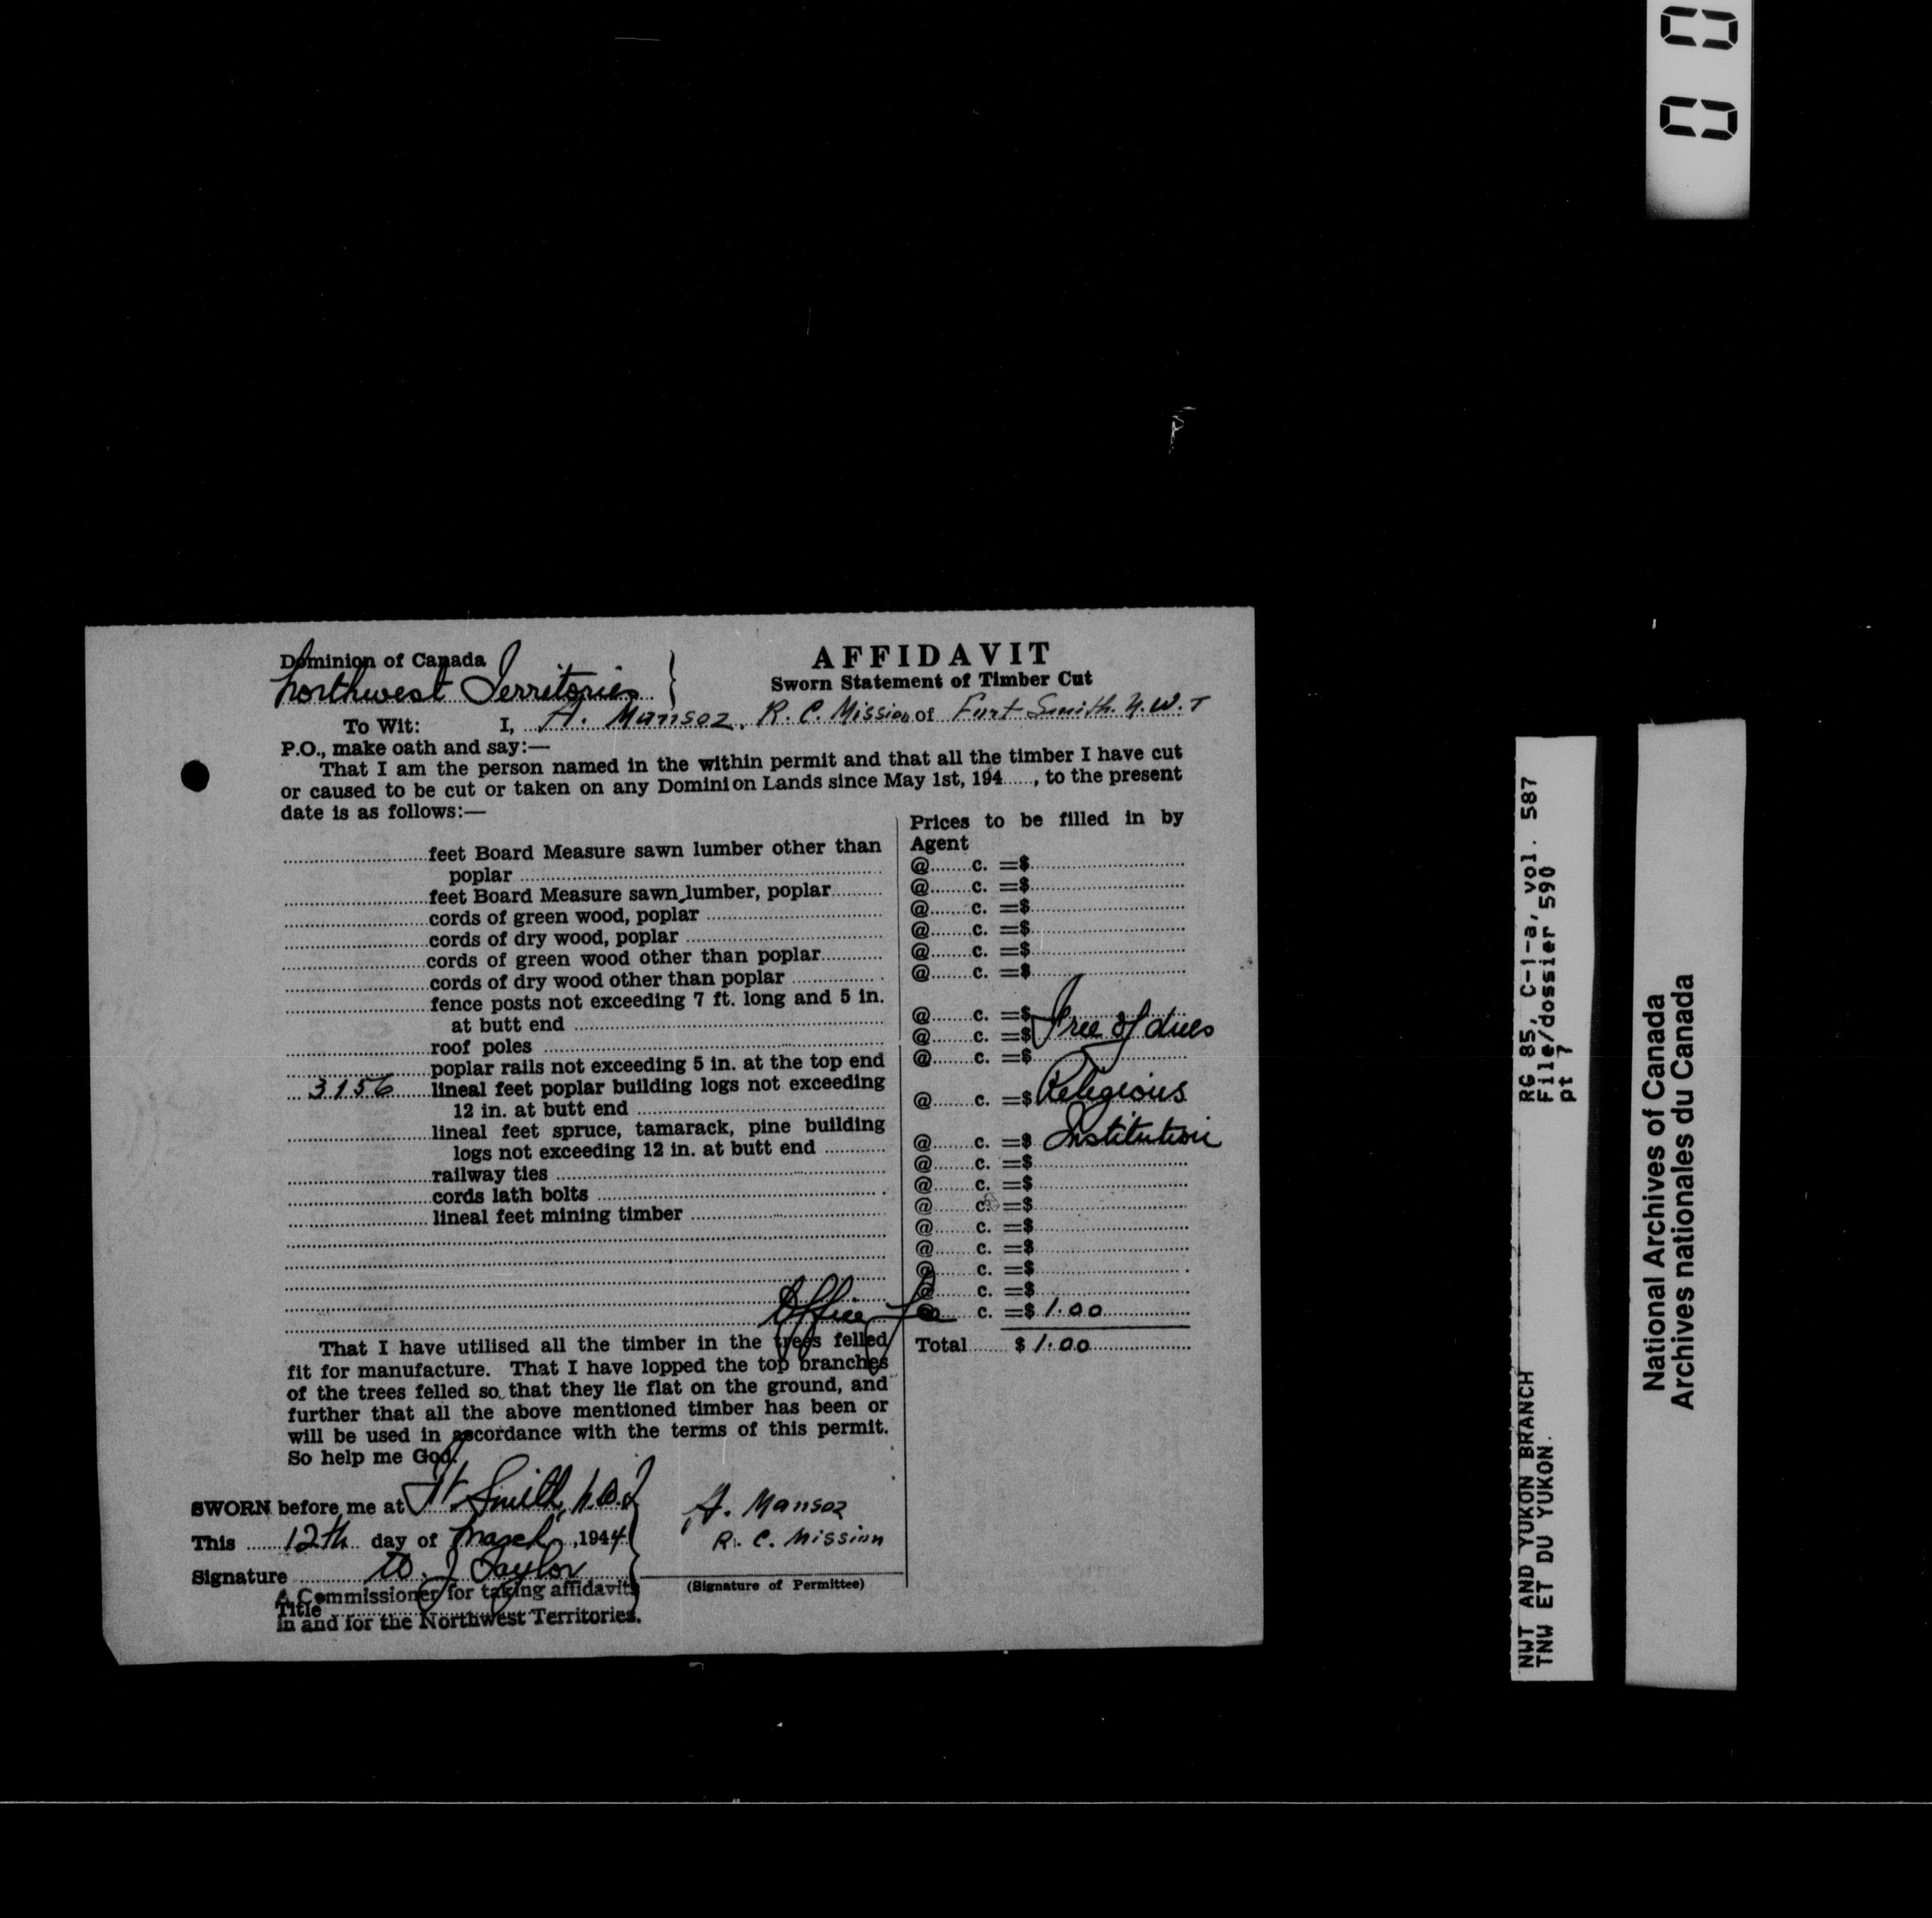 Dominion of Canada
Northwest Territories
AFFIDAVIT
Sworn Statement of Timber Cut
To Wit: I, A. Mansoz. R. C. Mission of Fort Smith. N.W.T
P.O., make oath and say:—
That I am the person named in the within permit and that all the timber I have cut
or caused to be cut or taken on any Dominion Lands since May 1st, 194....., to the present
date is as follows:—
Prices to be filled in by
Agent
feet Board Measure sawn lumber other than
poplar @ c. =$
feet Board Measure sawn lumber, poplar @ c. =$
cords of green wood, poplar @ c. =$
cords of dry wood, poplar @ c. =$
cords of green wood other than poplar @ c. =$
cords of dry wood other than poplar @ c. =$
fence posts not exceeding 7 ft. long and 5 in.
at butt end @ c. =$ Free of dues
roof poles @ c. =$
poplar rails not exceeding 5 in. at the top end @ c. =$
3156 lineal feet poplar building logs not exceeding
12 in. at butt end @ c. =$ Religious
lineal feet spruce, tamarack, pine building
logs not exceeding 12 in. at butt end @ c. =$ Institution
railway ties @ c. =$
cords lath bolts @ c. =$
lineal feet mining timber @ c. =$
@ c. =$
@ c. =$
@ c. =$
@ c. =$
Office fee @ c. =$ 1.00
Total $ 1.00
That I have utilised all the timber in the trees felled
fit for manufacture. That I have lopped the top branches
of the trees felled so that they lie flat on the ground, and
further that all the above mentioned timber has been or
will be used in accordance with the terms of this permit.
So help me God.
SWORN before me at Ft Smith, N.W.T
This 12th day of March, 1944
Signature W. J Taylor
A Commissioner for taking affidavits
Title
in and for the Northwest Territories.
A. Mansoz
R. C. Mission
(Signature of Permittee)
RG 85, C-1-a, vol. 587
File/dossier 590
pt 7
NWT AND YUKON BRANCH
TNW ET DU YUKON.
National Archives of Canada
Archives nationales du Canada
00